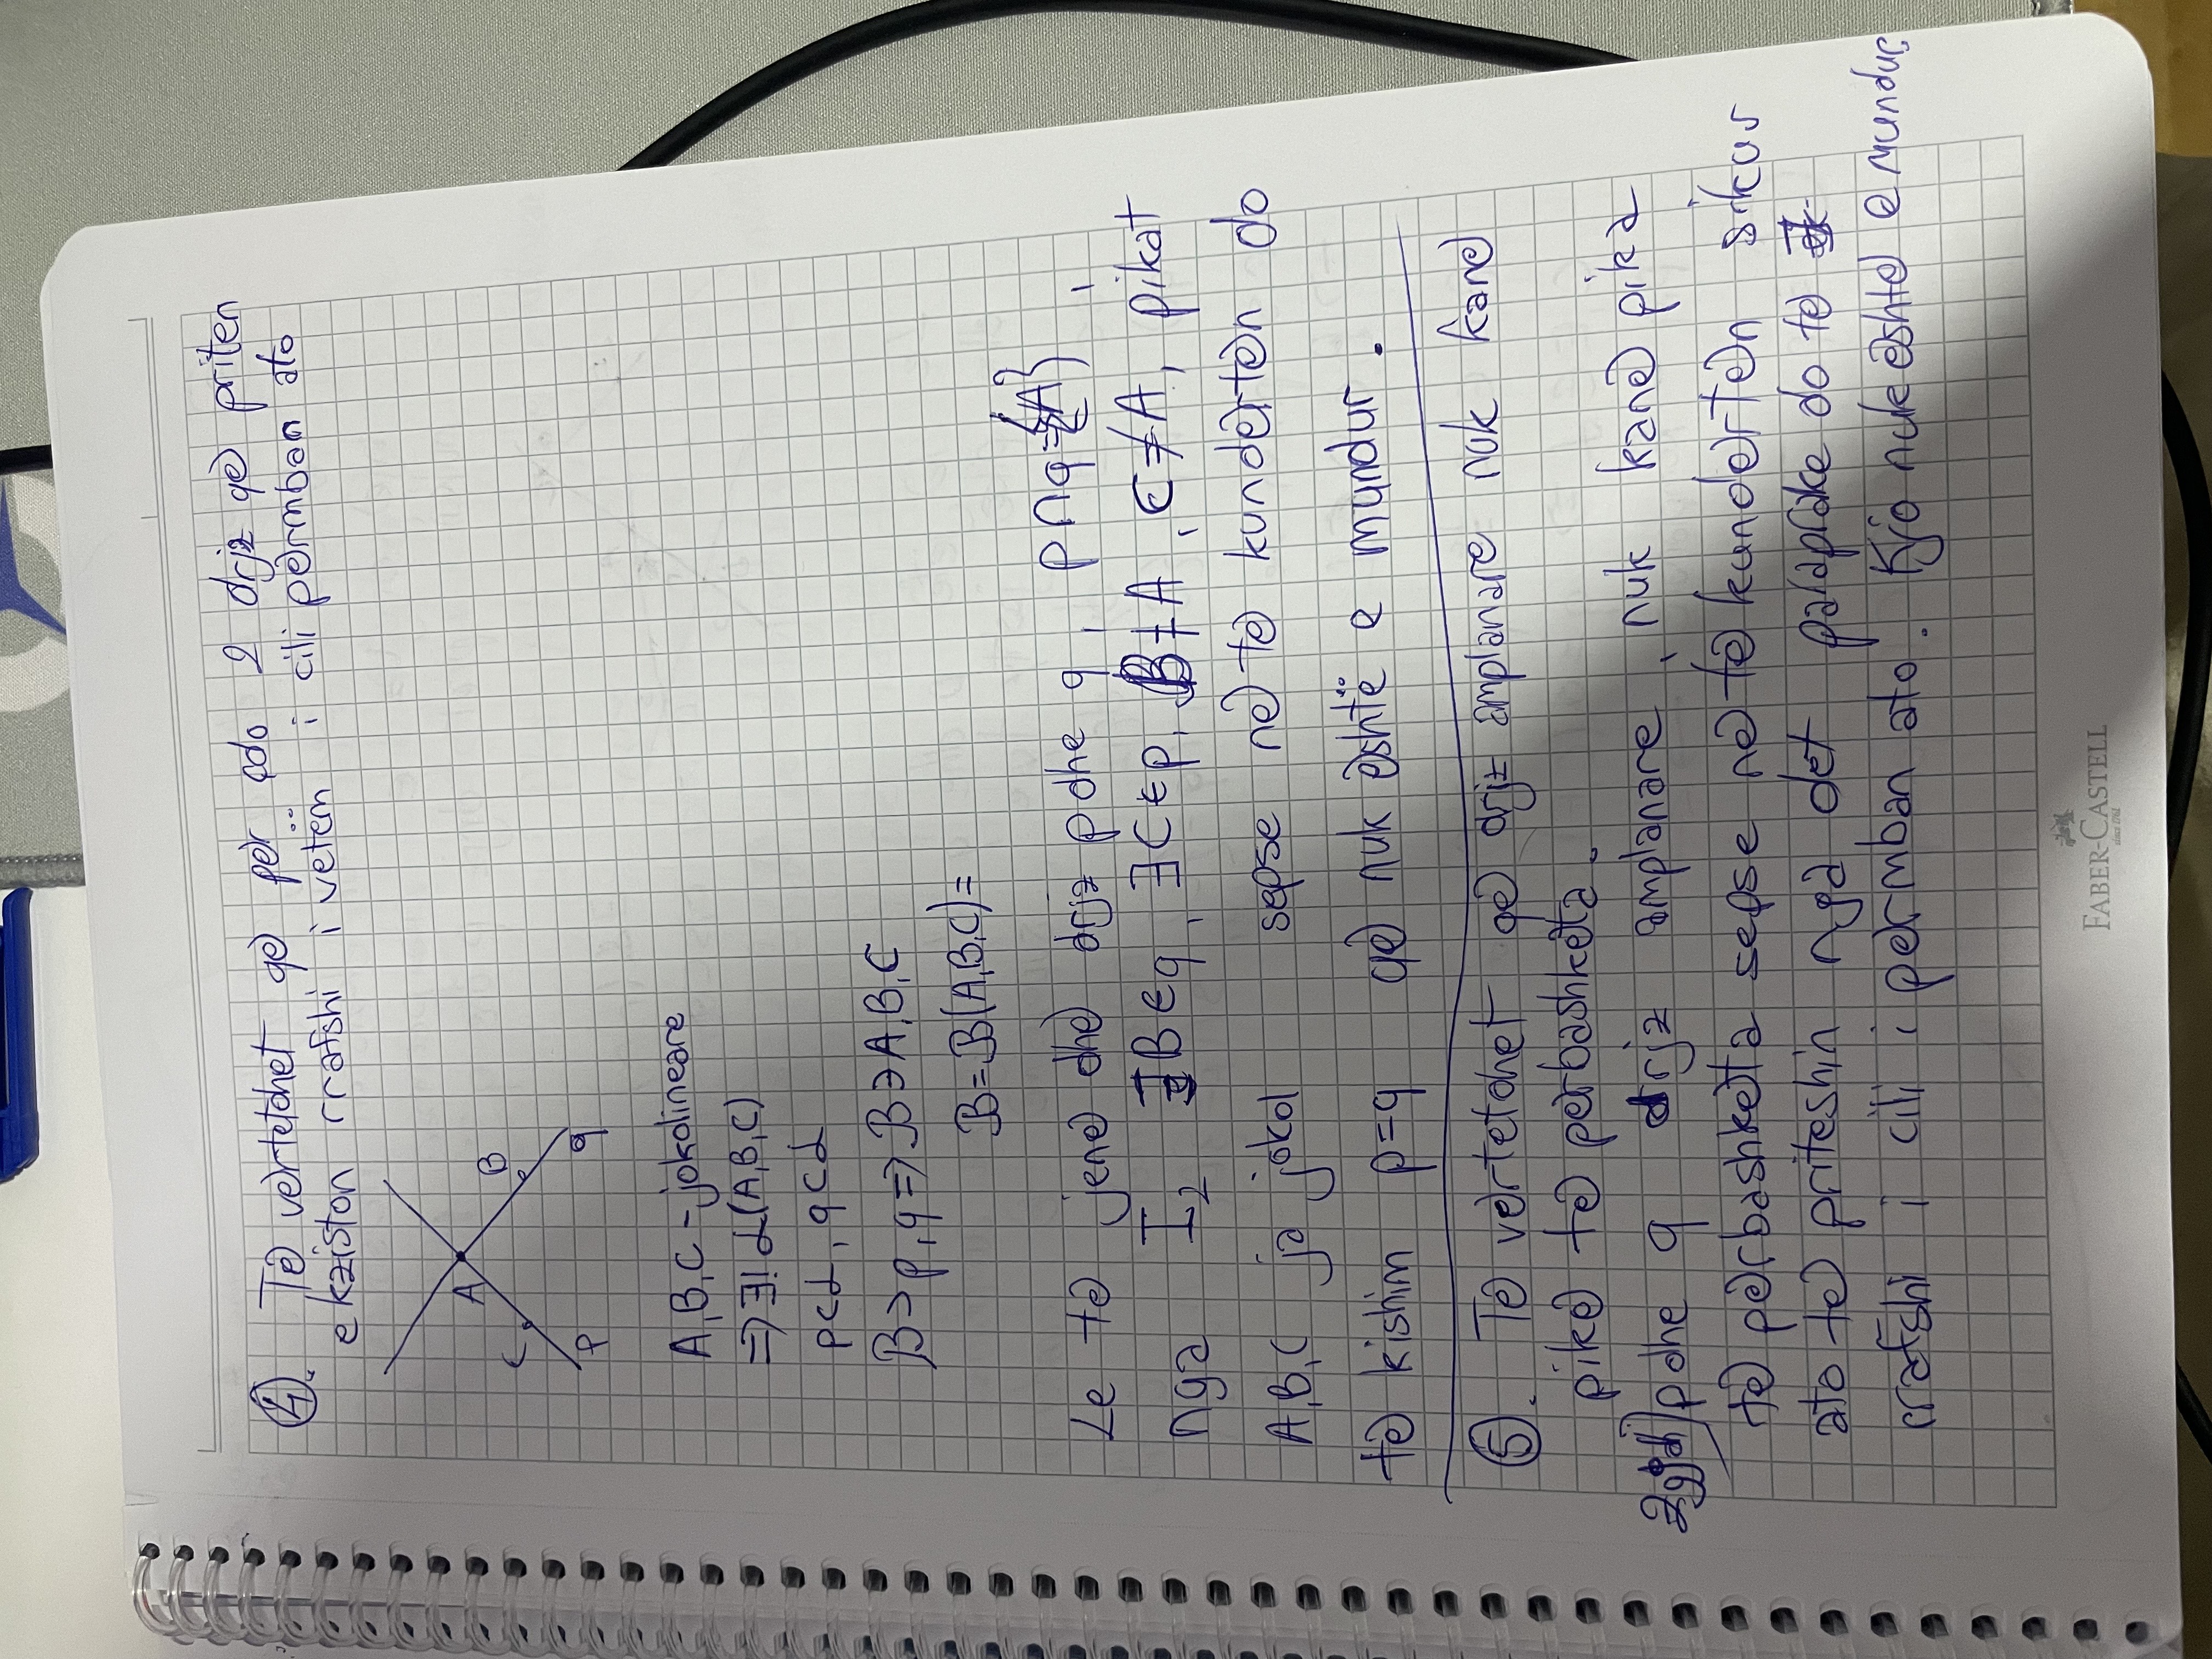 4. Të vërtetohet që për çdo 2 drjz që priten
ekziston rrafshi i vetëm i cili përmban ato
A
B
C
p
q
A, B, C - jokolineare
=> ∃! α(A,B,C)
p⊂α, q⊂α
β⊃p,q => β∋A,B,C
β=β(A,B,C)=
Le të jenë dhë drjz p dhe q, p∩q={A},
nga I₂ ∃B∈q, ∃C∈p, B≠A, C≠A, pikat
A,B,C ja jokol sepse në të kundërtën do
të kishim p=q që nuk është e mundur.
5. Të vërtetohet që drjz amplanare nuk kanë
pikë të përbashkëta.
Zgjdh) p dhe q drjz amplanare, nuk kanë pika
të përbashkëta sepse në të kundërtën sikur
ato të priteshin nga det paraprake do të ∃
rrafshi i cili i përmban ato. Kjo nuk është e mundur.
FABER-CASTELL
since 1761